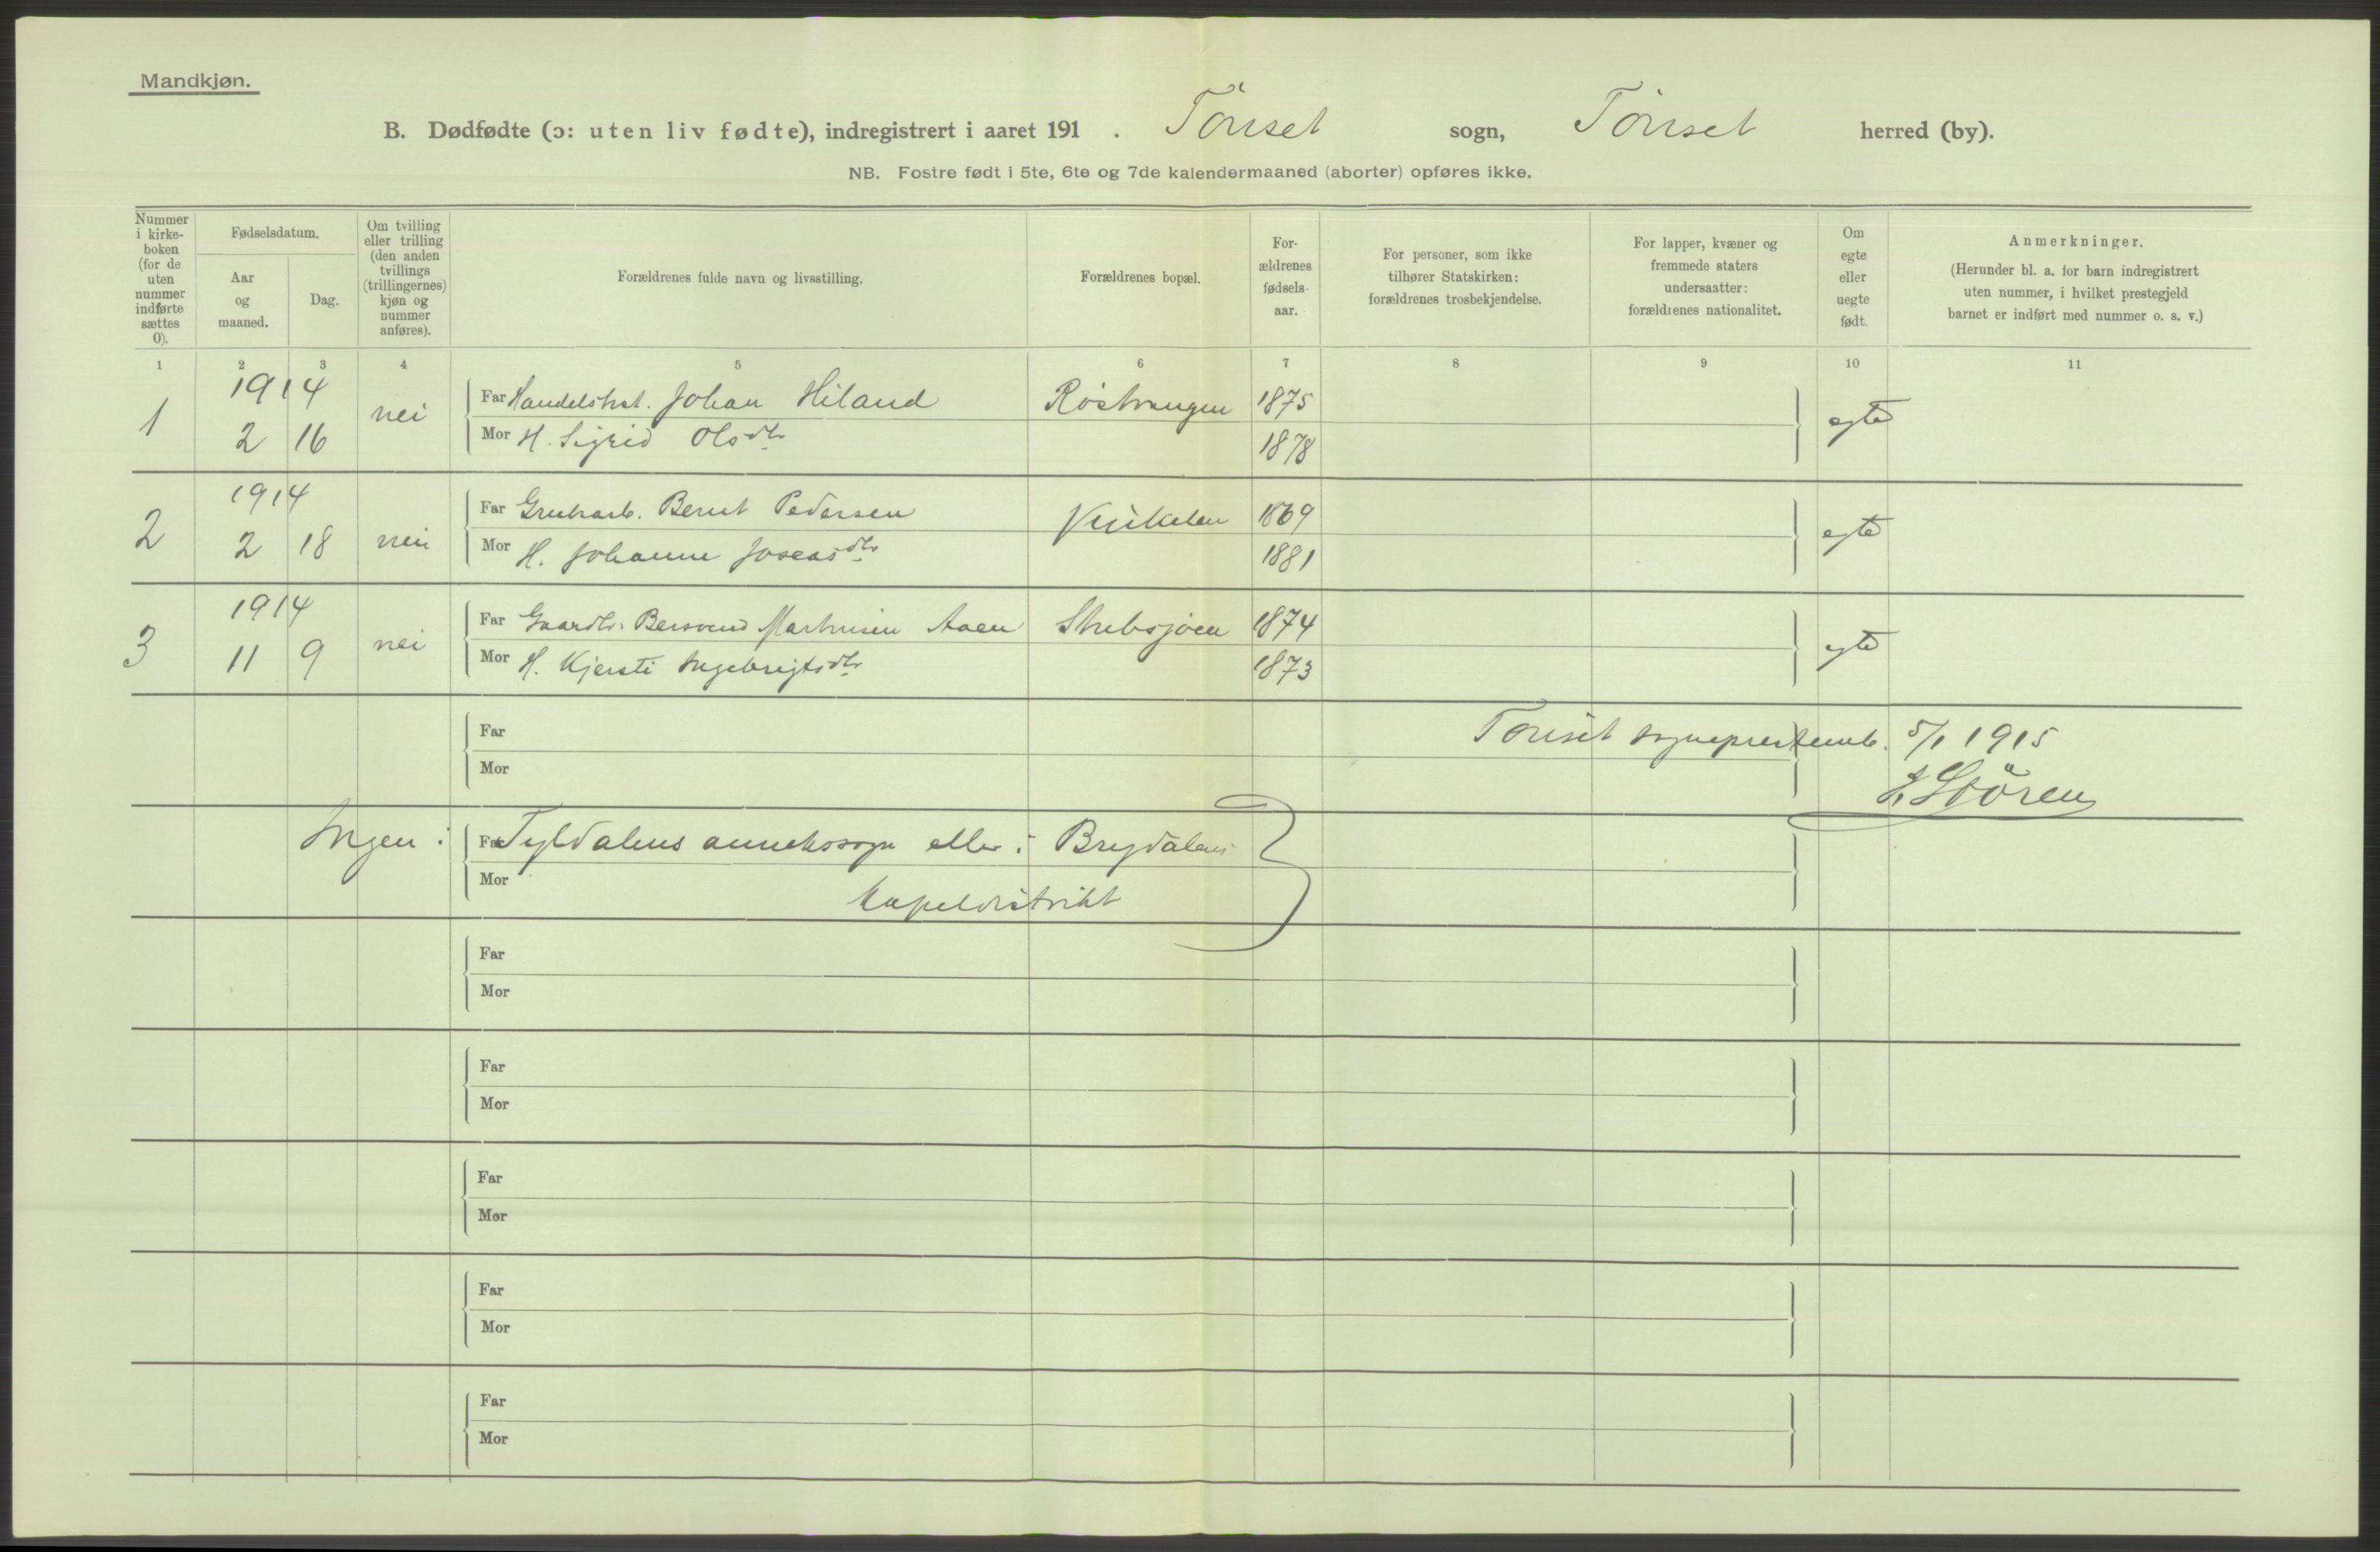 Mandkjøn.
B. Dødfødte (ɔ: uten liv fødte), indregistrert i aaret 191 . Tönset sogn, Tönset herred (by).
NB. Fostre født i 5te, 6te og 7de kalendermaaned (aborter) opføres ikke.
Nummer i kirke-boken (for de uten nummer indførte sættes 0).
Fødselsdatum.
Aar og maaned.
Dag.
Om tvilling eller trilling (den anden tvillings (trillingernes) kjøn og nummer anføres).
Forældrenes fulde navn og livsstilling.
Forældrenes bopæl.
For-ældrenes fødsels-aar.
For personer, som ikke tilhører Statskirken: forældrenes trosbekjendelse.
For lapper, kvæner og fremmede staters undersaatter: forældrenes nationalitet.
Om egte eller uegte født.
Anmerkninger.
(Herunder bl. a. for barn indregistrert uten nummer, i hvilket prestegjeld barnet er indført med nummer o. s. v.)
1 2 3 4 5 6 7 8 9 10 11
1914
1 2 16 nei Far Handelsbest. Johan Hiland Röstvangen 1875 egte
Mor H. Sigrid Olsdtr 1878
1914
2 2 18 nei Far Grubearb. Bernt Pedersen 1869 egte
Mor H. Johanne Joseasdtr 1881
1914
3 11 9 nei Far Gaardbr. Bersvend Martinsen Aaen Stubsjöen 1874 egte
Mor H. Kjersti Ingebrigtsdtr 1873
Far Tönset sogneprestemb. 5/1 1915
Mor Stören
Ingen i Far Tyldalens annekssogn eller i Brydalens
Mor kapeldistrikt
Far
Mor
Far
Mor
Far
Mor
Far
Mor
Far
Mor